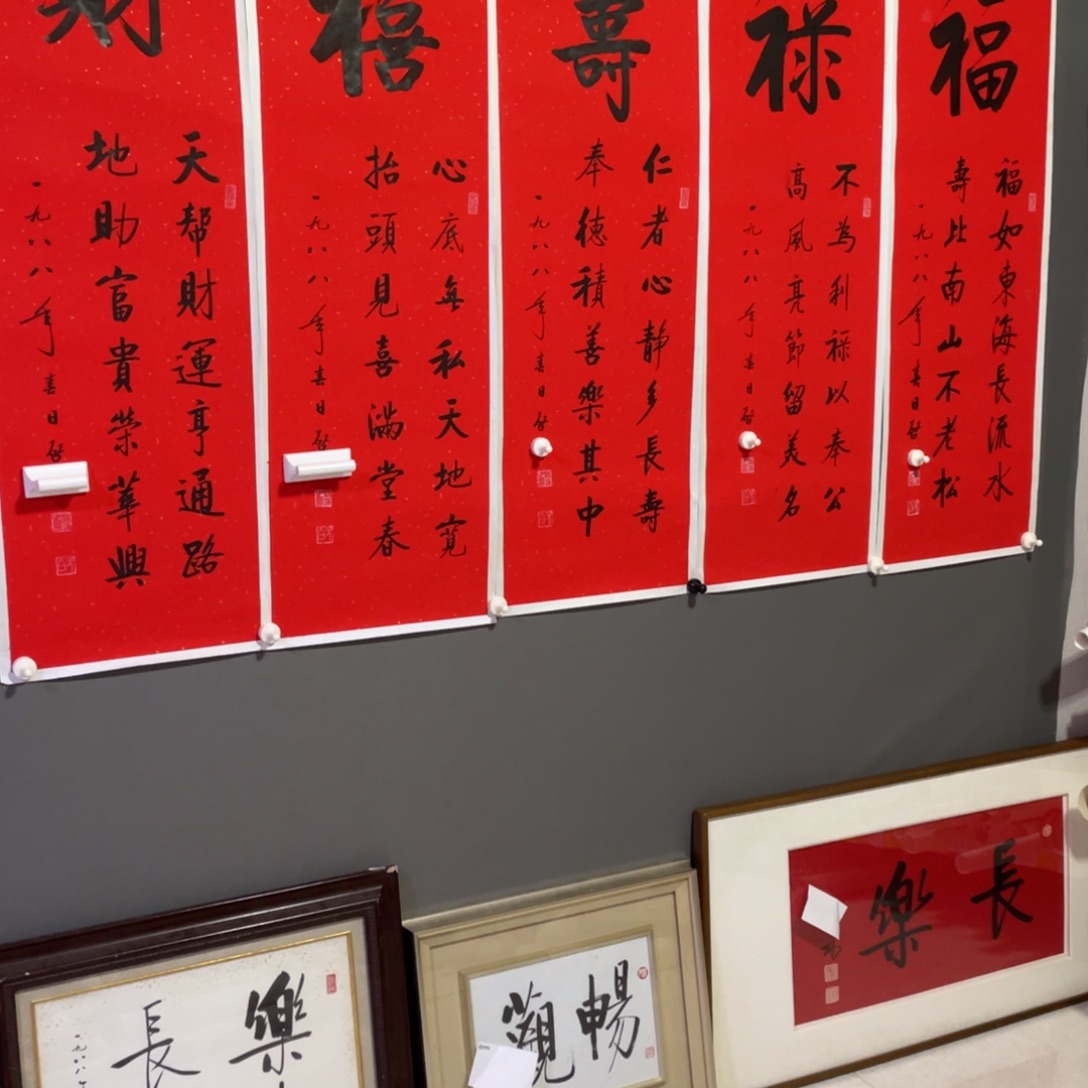 福
福如東海長流水
壽比南山不老松
一九八八年春日啓
禄
不為利禄以奉公
高風亮節留美名
一九八八年春日啓
壽
仁者心静多長壽
奉德積善樂其中
一九八八年春日啓
禧
心底無私天地寬
抬頭見喜滿堂春
一九八八年春日啓
財
天帮財運亨通路
地助富貴荣華興
一九八八年春日啓
長樂
暢觀
樂
長
一九八八